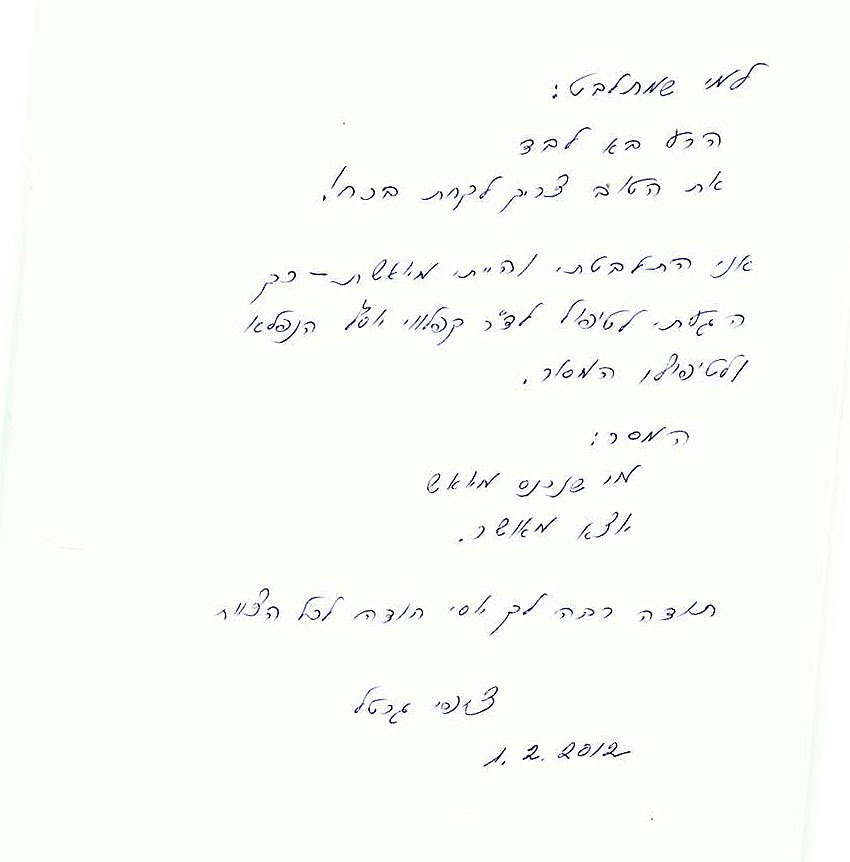 למי שמתלבט:
הרע בא לבד
את הטוב צריך לקחת בכח!
אני התלבטתי והייתי מיואשת – כך
הגעתי לטיפול לד"ר קפלווי יוסף הנפלא
ולטיפולו המסור.
המסר:
מי שנכנס מיואש
יוצא מאושר.
תודה רבה לך יוסי תודה לכל הצוות
1.2.2012